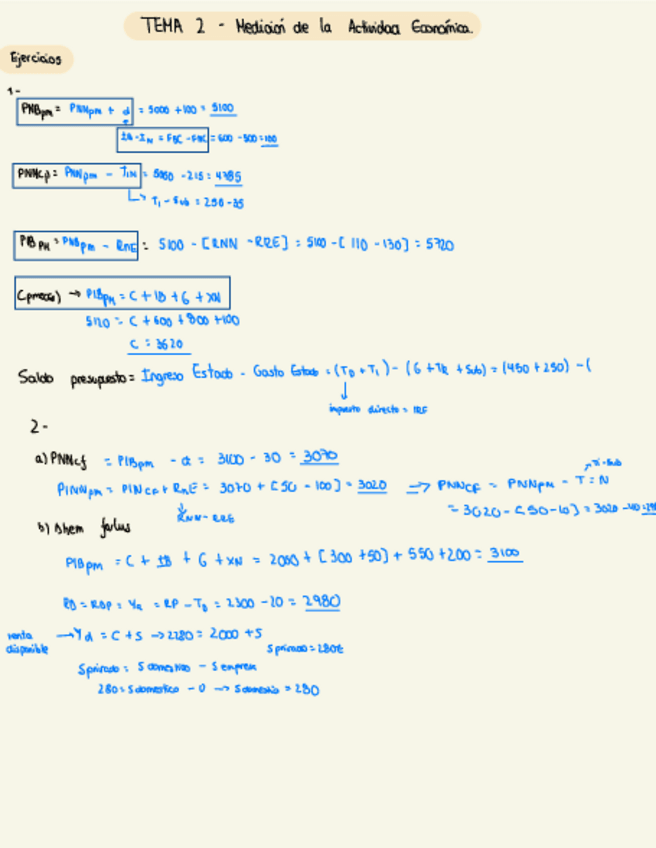 TEMA 2 - Medición de la Actividad Económica.
Ejercicios
1-
PNBpm = PNNpm + d = 5000 + 100 = 5100
IB - IN = FBC - FNC = 600 - 500 = 100
PNNcf = PNNpm - TIN = 5000 - 215 = 4785
Ti - Sub = 250 - 35
PIBpm = PNBpm - RNE = 5100 - [RNN - RRE] = 5100 - [110 - 130] = 5720
C → PIBpm = C + IB + G + XN
5120 = C + 600 + 800 + 100
C = 3620
Saldo presupuesto = Ingreso Estado - Gasto Estado = (TD + Ti) - (G + TR + Sub) = (450 + 250) - (
impuesto directo = IRF
2-
a) PNNcf = PIBpm - d = 3100 - 30 = 3070
Ti - Sub
PINNpm = PINcf + RNE = 3070 + [50 - 100] = 3020 → PNNCF = PNNpm - T = N
RNN - RRE
= 3020 - [50 - 10] = 3020 - 40 =
b)
PIBpm = C + IB + G + XN = 2000 + [300 + 50] + 550 + 200 = 3100
RD = RDP = Yd = RP - TD = 2300 - 20 = 2980
renta disponible → Yd = C + S → 2280 = 2000 + S
Sprivado = 280€
Sprivado = Sdomestico - Sempresa
280 = Sdomestico - 0 → Sdomestico = 280